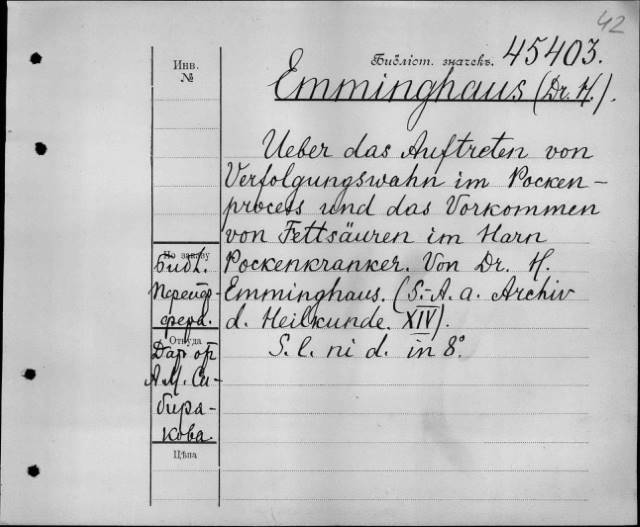 42
Библіот. значекъ. 45403.
Инв.
№
Emminghaus (Dr. H.).
Ueber das Auftreten von
Verfolgungswahn im Pocken-
process und das Vorkommen
von Fettsäuren im Harn
Pockenkranker. Von Dr. H.
Emminghaus. (S.-A. a. Archiv
d. Heilkunde. XIV).
S. l. ni d. in 8°.
По заказу
Библ.
фера.
Откуда
Дар от
А. М. Си-
биря-
кова.
Цѣна